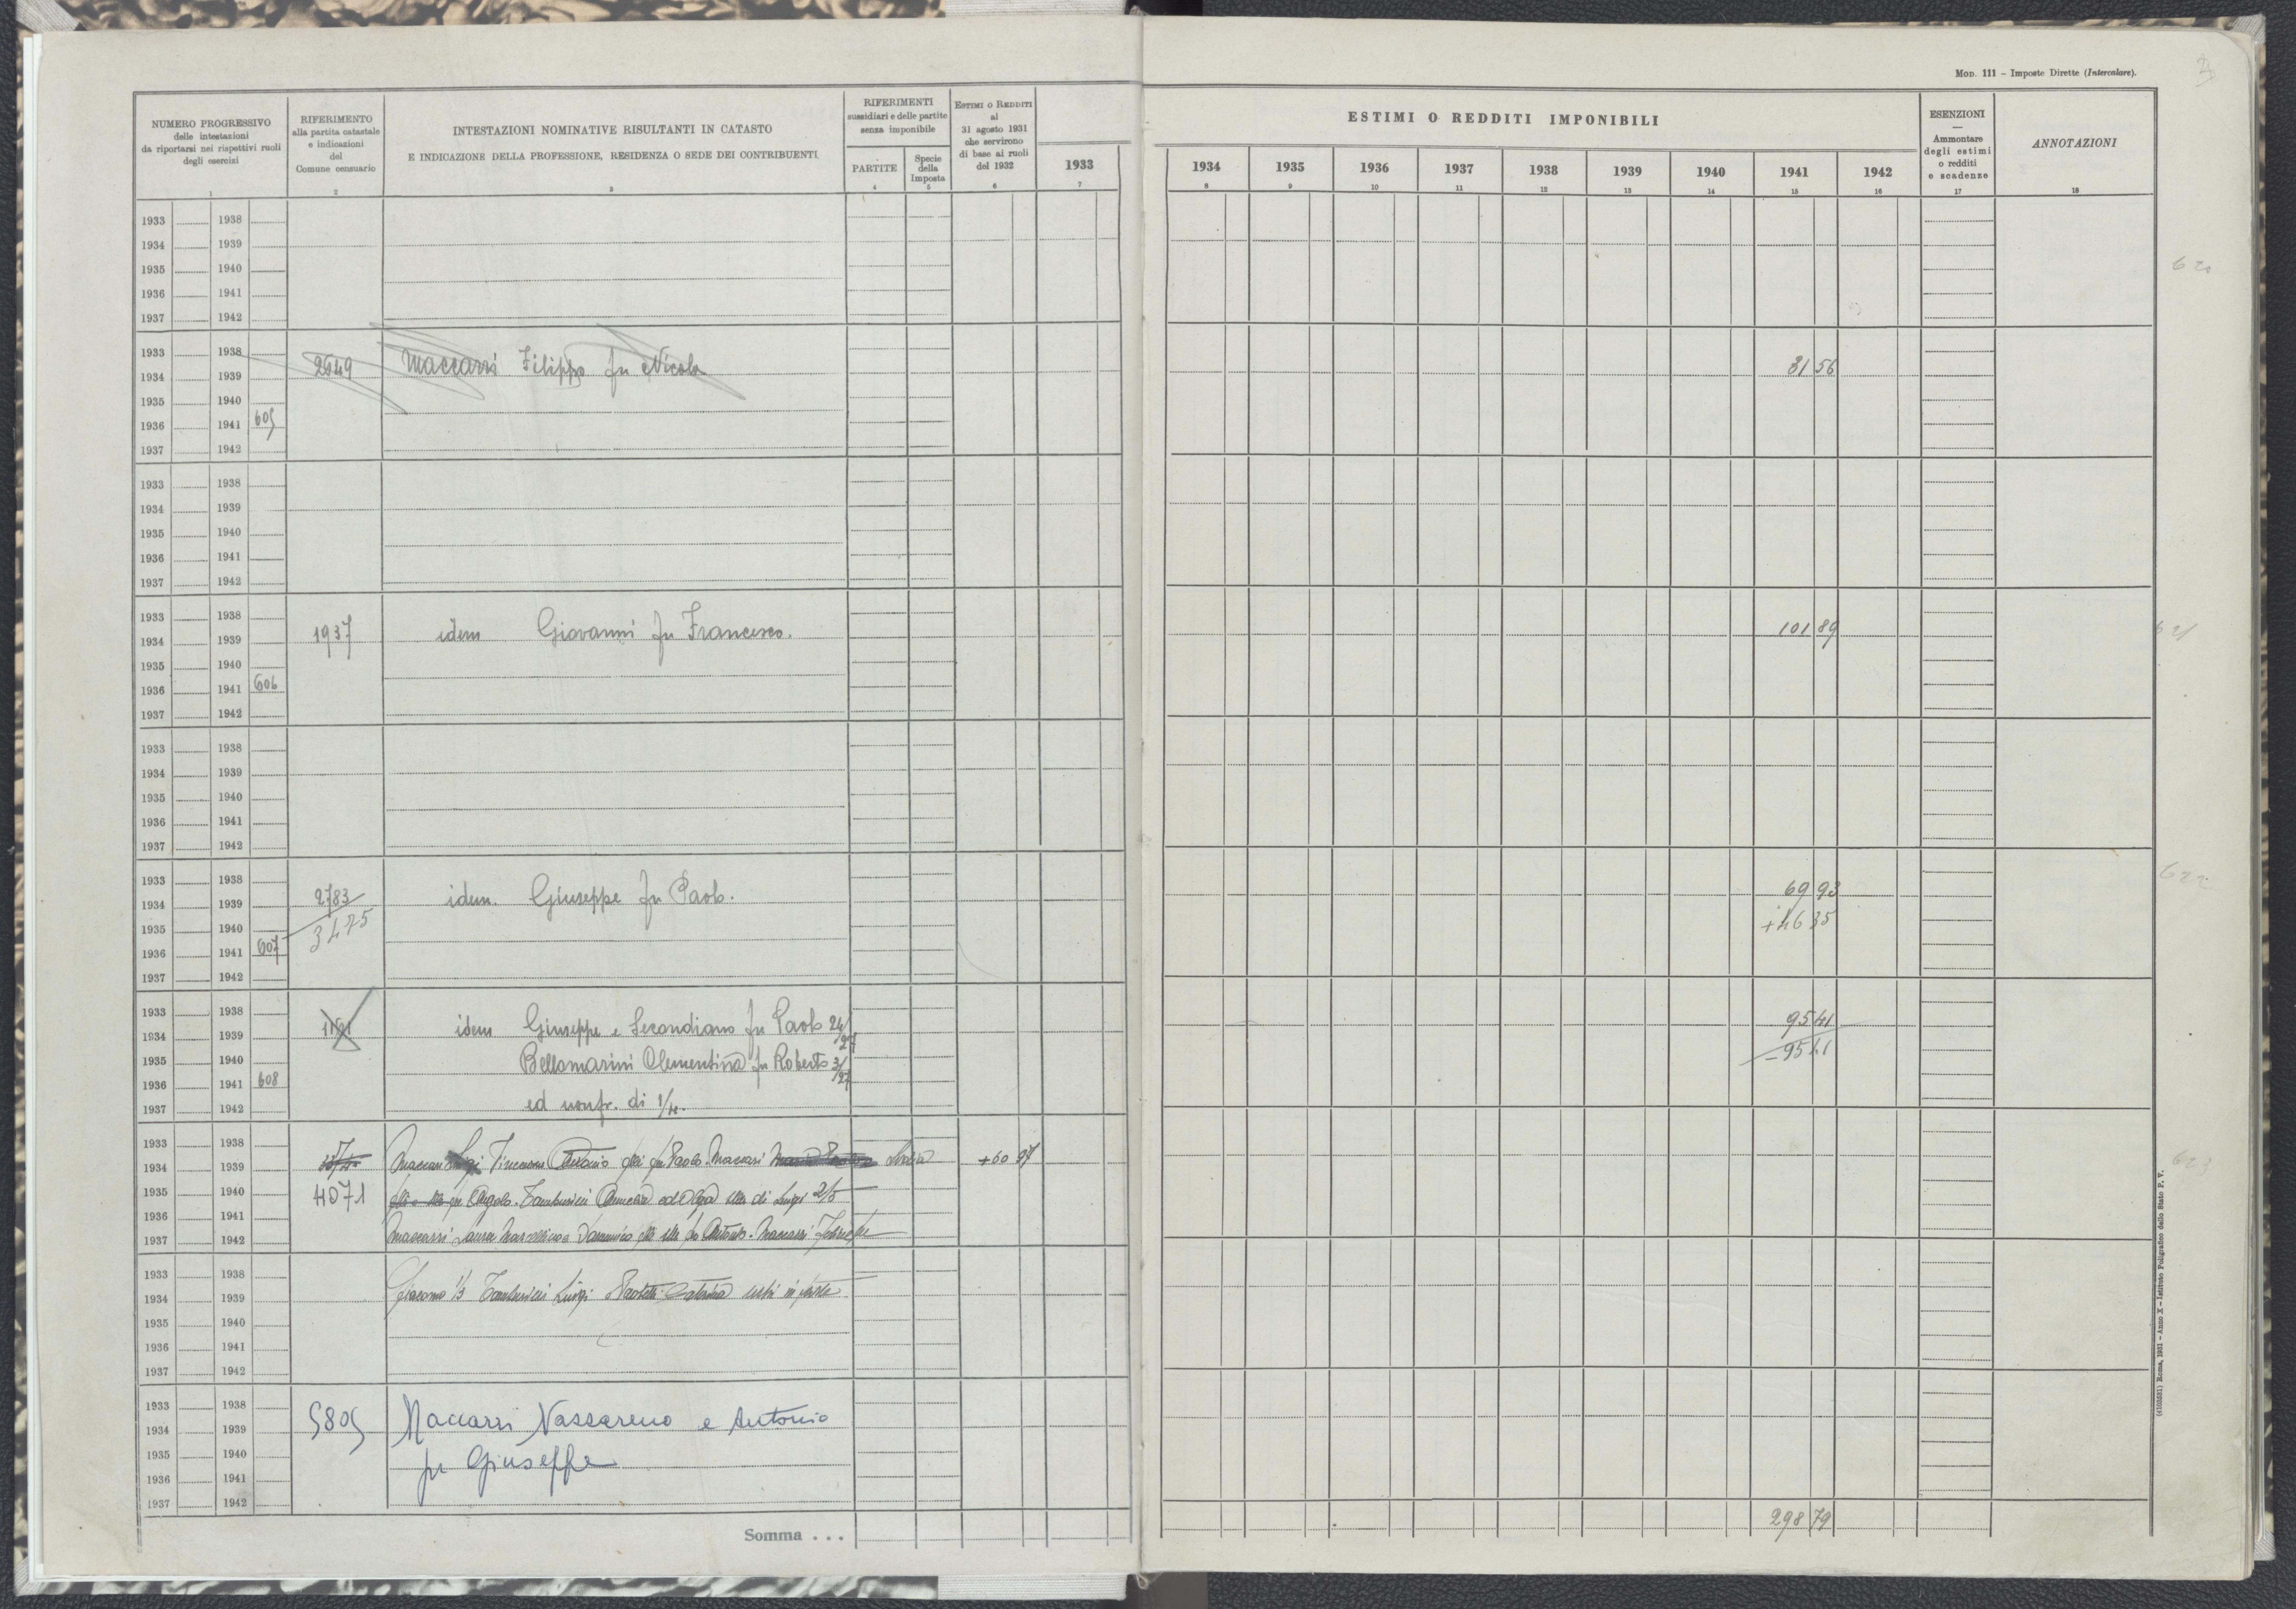 MOD. 111 – Imposte Dirette (Intercalare).
NUMERO PROGRESSIVO
delle intestazioni
da riportarsi nei rispettivi ruoli
degli esercizi
1
RIFERIMENTO
alla partita catastale
e indicazioni
del
Comune censuario
2
INTESTAZIONI NOMINATIVE RISULTANTI IN CATASTO
E INDICAZIONE DELLA PROFESSIONE, RESIDENZA O SEDE DEI CONTRIBUENTI
3
RIFERIMENTI
sussidiari e delle partite
senza imponibile
PARTITE
4
Specie
della
Imposta
5
ESTIMI O REDDITI
al
31 agosto 1931
che servirono
di base ai ruoli
del 1932
6
1933
7
ESTIMI O REDDITI IMPONIBILI
1934 1935 1936 1937 1938 1939 1940 1941 1942
8 9 10 11 12 13 14 15 16
ESENZIONI
—
Ammontare
degli estimi
o redditi
e scadenze
17
ANNOTAZIONI
18
1933 1938
1934 1939
1935 1940
1936 1941
1937 1942
620
1933 1938
1934 1939 2649 Maccarri Filippo fu Nicola 31 56
1935 1940
1936 1941 605
1937 1942
1933 1938
1934 1939
1935 1940
1936 1941
1937 1942
1933 1938
1934 1939 1937 idem Giovanni fu Francesco. 101 89
621
1935 1940
1936 1941 606
1937 1942
1933 1938
1934 1939
1935 1940
1936 1941
1937 1942
1933 1938
1934 1939 2783 idem. Giuseppe fu Paolo. 69 93
622
1935 1940 3475 + 46 35
1936 1941 607
1937 1942
1933 1938
1934 1939 idem Giuseppe e Secondiano fu Paolo 24/27 95 41
1935 1940 Bellomarini Clementina fu Roberto 3/27 – 95 41
1936 1941 608
1937 1942 ed usufr. di 1/4.
1933 1938
1934 1939 Maccari Vincenzo Antonio flli fu Paolo. Maccari Maria +60 97
623
1935 1940 4071 fu Angelo. Tamburini Amelia ed Olga slle di Luigi 2/5
1936 1941
1937 1942 Maccarri Laura Marcellino e Domenico flli slle fu Antonio. Maccarri
1933 1938
1934 1939 Giacomo 1/3 Tamburini Luigi Caterina usfr in parte
1935 1940
1936 1941
1937 1942
1933 1938
1934 1939 5805 Maccarri Nassareno e Antonio
1935 1940 fu Giuseppe
1936 1941
1937 1942
Somma . . . 298 79
(4103581) Roma, 1931 – Anno X – Istituto Poligrafico dello Stato P. V.